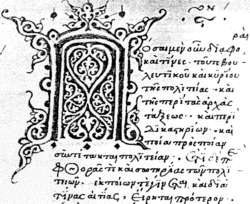 Πόσαι μὲν οὖν διαφο
ραὶ
καὶ τίνες τοῦ τε βου
λευτικοῦ καὶ κυρίου
τῆς πολιτείας · καὶ
τῆς περὶ τὰς ἀρχὰς
τάξεως · καὶ περὶ
δικαστηρίων · καὶ
ποία πρὸς ποίαν
συντέτακται πολιτείαν · ἔτι δὲ περὶ
φθορᾶς τε καὶ σωτηρίας τῶν πολι
τειῶν · ἐκ ποίων τε γίνεται καὶ διὰ
τίνας αἰτίας, εἴρηται πρότερον ·